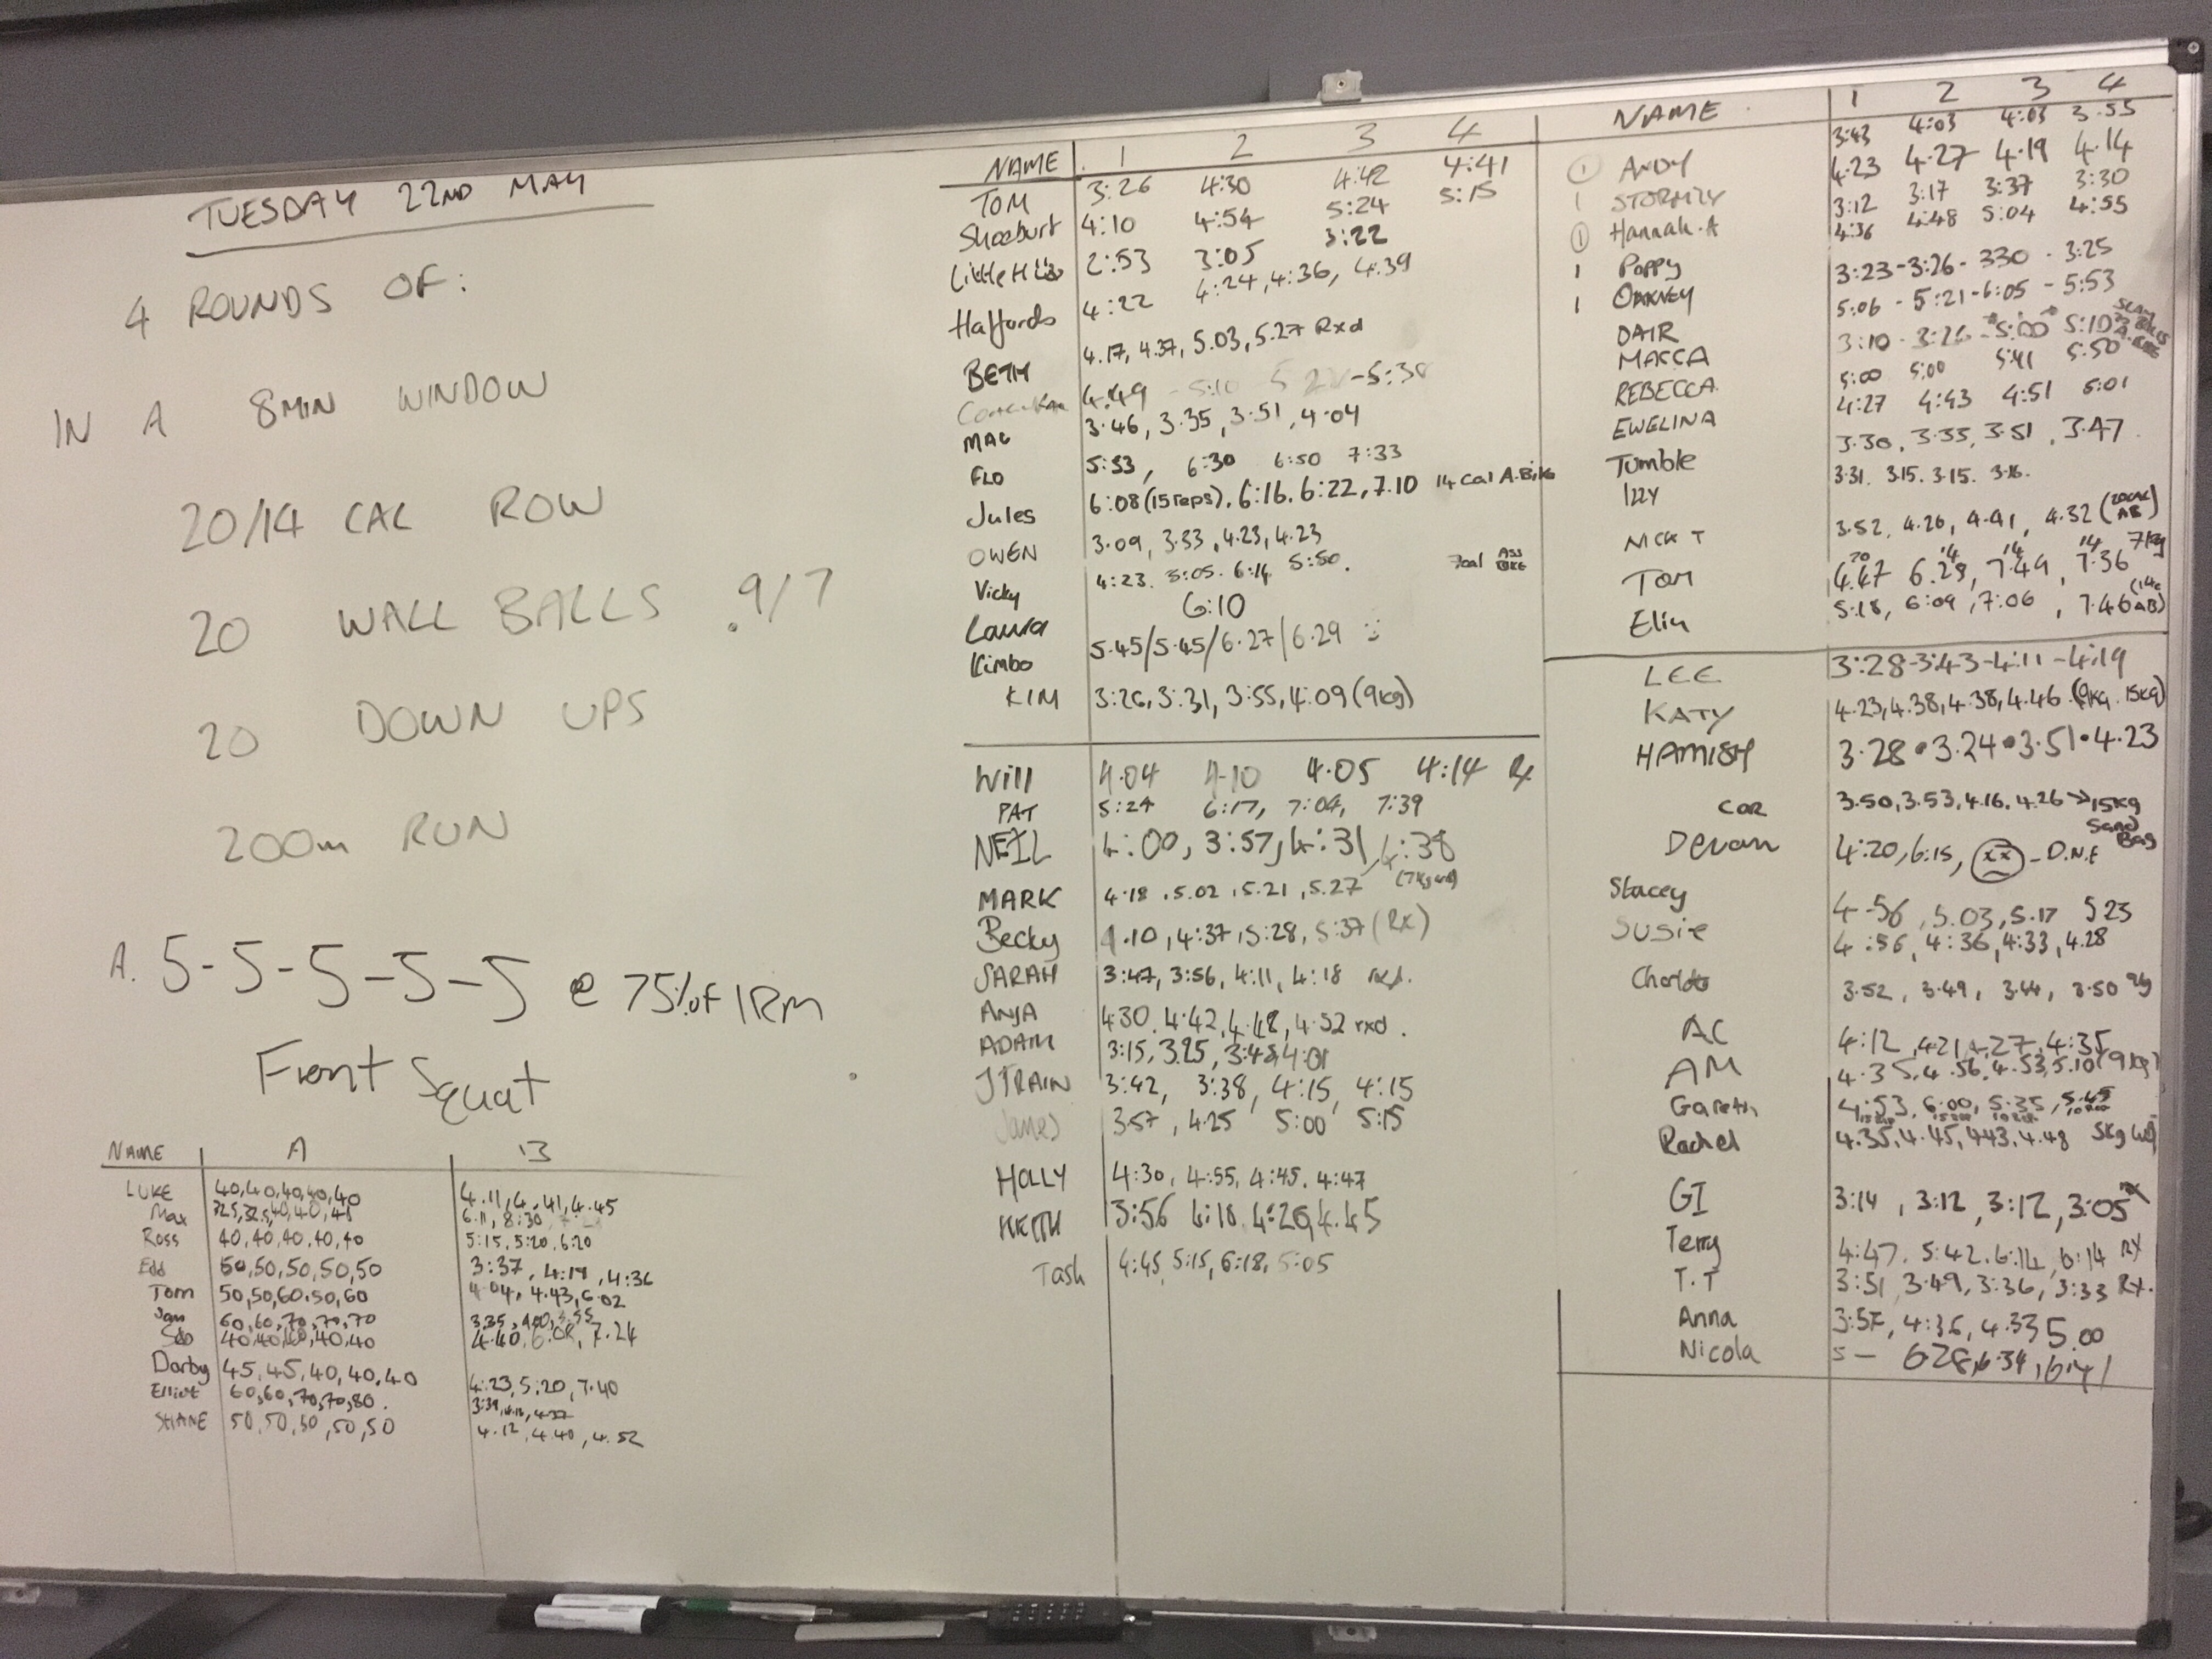 TUESDAY 22ND MAY
4 ROUNDS OF:
IN A 8MIN WINDOW
20/14 CAL ROW
20 WALL BALLS 9/7
20 DOWN UPS
200m RUN
A. 5-5-5-5-5 @ 75% of 1RM
Front Squat
NAME A B
LUKE 40,40,40,40,40 4.11, 4.41, 4.45
Max 32.5, 32.5, 40, 40, 45 6.11, 8:30
Ross 40,40,40,40,40 5:15, 5:20, 6:20
Edd 50,50,50,50,50 3:37, 4:19, 4:36
Tom 50,50,60,50,60 4.04, 4.43, 6.02
60,60,70,70,70 3.35,
40,40,40,40,40 4.40, 6.08, 7.24
Darby 45,45,40,40,40 4:23, 5:20, 7.40
Elliot 60,60,70,70,80. 3:39,
SHANE 50,50,50,50,50 4.12, 4.40, 4.52
NAME 1 2 3 4
TOM 3:26 4:30 4:42 4:41
4:10 4:54 5:24 5:15
Little 2:53 3:05 3:22
Haffords 4:22 4:24, 4:36, 4.39
BETH 4.17, 4.37, 5.03, 5.27 Rxd
4.49 - 5:10
MAC 3.46, 3.35, 3.51, 4.04
FLO 5:53, 6:30 6:50 7:33
Jules 6:08 (15 reps), 6:16, 6:22, 7.10 14 Cal A.Bike
OWEN 3.09, 3.33, 4.23, 4.23
Vicky 4:23. 5:05. 6:14 5:50. 7cal ASS BIKE
Laura 6:10
Kimbo 5.45/5.45/6.27/6.29
KIM 3:26, 3:31, 3:55, 4:09 (9kg)
Will 4.04 4.10 4.05 4:14 Rx
PAT 5:24 6:17, 7:04, 7:39
NEIL 4:00, 3:57, 4:31, 4:38
MARK 4.18, 5.02, 5.21, 5.27
Becky 4.10, 4:37, 5:28, 5:37 (Rx)
SARAH 3:47, 3:56, 4:11, 4:18 rxd.
ANJA 4:30, 4:42, 4:48, 4:52 rxd.
ADAM 3:15, 3.25, 3:48, 4:01
JTRAIN 3:42, 3:38, 4:15, 4:15
James 3.57, 4.25 5:00 5:15
HOLLY 4:30, 4:55, 4:45, 4:47
KEITH 3:56 4:10, 4:20, 4.45
Tash 4:45, 5:15, 6:18, 5:05
NAME 1 2 3 4
3:43 4:03 4:03 3.55
1 ANDY 4:23 4:27 4:19 4.14
1 STORMZY 3:12 3:17 3:37 3:30
1 Hannah.A 4:36 4:48 5:04 4:55
1 Poppy 3:23-3:26-330-3:25
1 OAKNEY 5:06-5:21-6:05-5:53
DAIR 3:10 - 3:26 - 5:00 5:10
MACCA 5:00 5:00 5:41 5:50
REBECCA 4:27 4:43 4:51 5:01
EWELINA 3.30, 3.35, 3.51, 3.47
Tumble 3.31. 3.15. 3.15. 3.16.
Izzy
NICK T 3.52, 4.26, 4.41, 4.32 (20CAL AB)
Tom 4.47 6.29, 7.49, 7.36 7kg
Elin 5.18, 6:09, 7:06, 7.46 (14c AB)
LEE 3:28-3:43-4:11-4:19
KATY 4.23, 4.38, 4.38, 4.46 (9kg. 15kg)
HAMISH 3.28•3.24•3.51•4.23
COR 3.50, 3.53, 4.16, 4.26 → 15kg Sand Bag
Devan 4:20, 6:15, - D.N.F
Stacey 4-56, 5.03, 5.17 5 23
Susie 4:56, 4:36, 4:33, 4.28
3.52, 3.49, 3.44, 3.50 9kg
AC 4:12, 421, 4.27, 4.35
AM 4.35, 4.56, 4.53, 5.10 (9kg)
Gareth 4:53, 6:00, 5:35, 5:45
Rachel 4.35, 4.45, 443, 4.48 5kg WB
GI 3:14, 3:12, 3:12, 3:05 rx
Terry 4:47. 5:42. 6:14, 6:14 RX
T.T 3:51, 3:49, 3:36, 3:33 Rx.
Anna 3:57, 4:36, 4.33 5.00
Nicola 5- 6 28, 6.34, 6.41